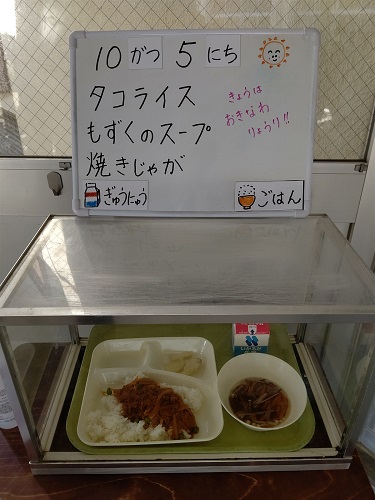 10がつ5にち
タコライス
もずくのスープ
焼きじゃが
ぎゅうにゅう
ごはん
きょうは
おきなわ
りょうり!!